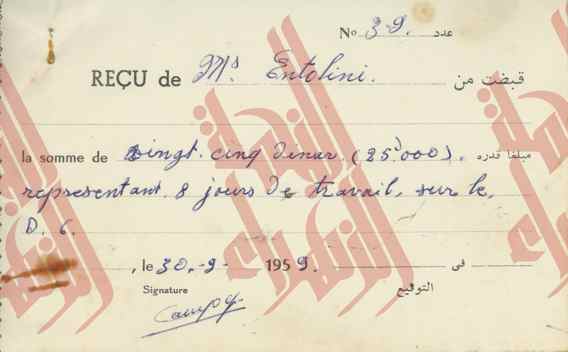 No 39. عدد
REÇU de Ms. Entolini. قبضت من
la somme de vingt. cinq dinar (25.000). مبلغا قدره
representant 8 jours de travail, sur le,
D. 6.
, le 30.-9- 1959. في
Signature التوقيع